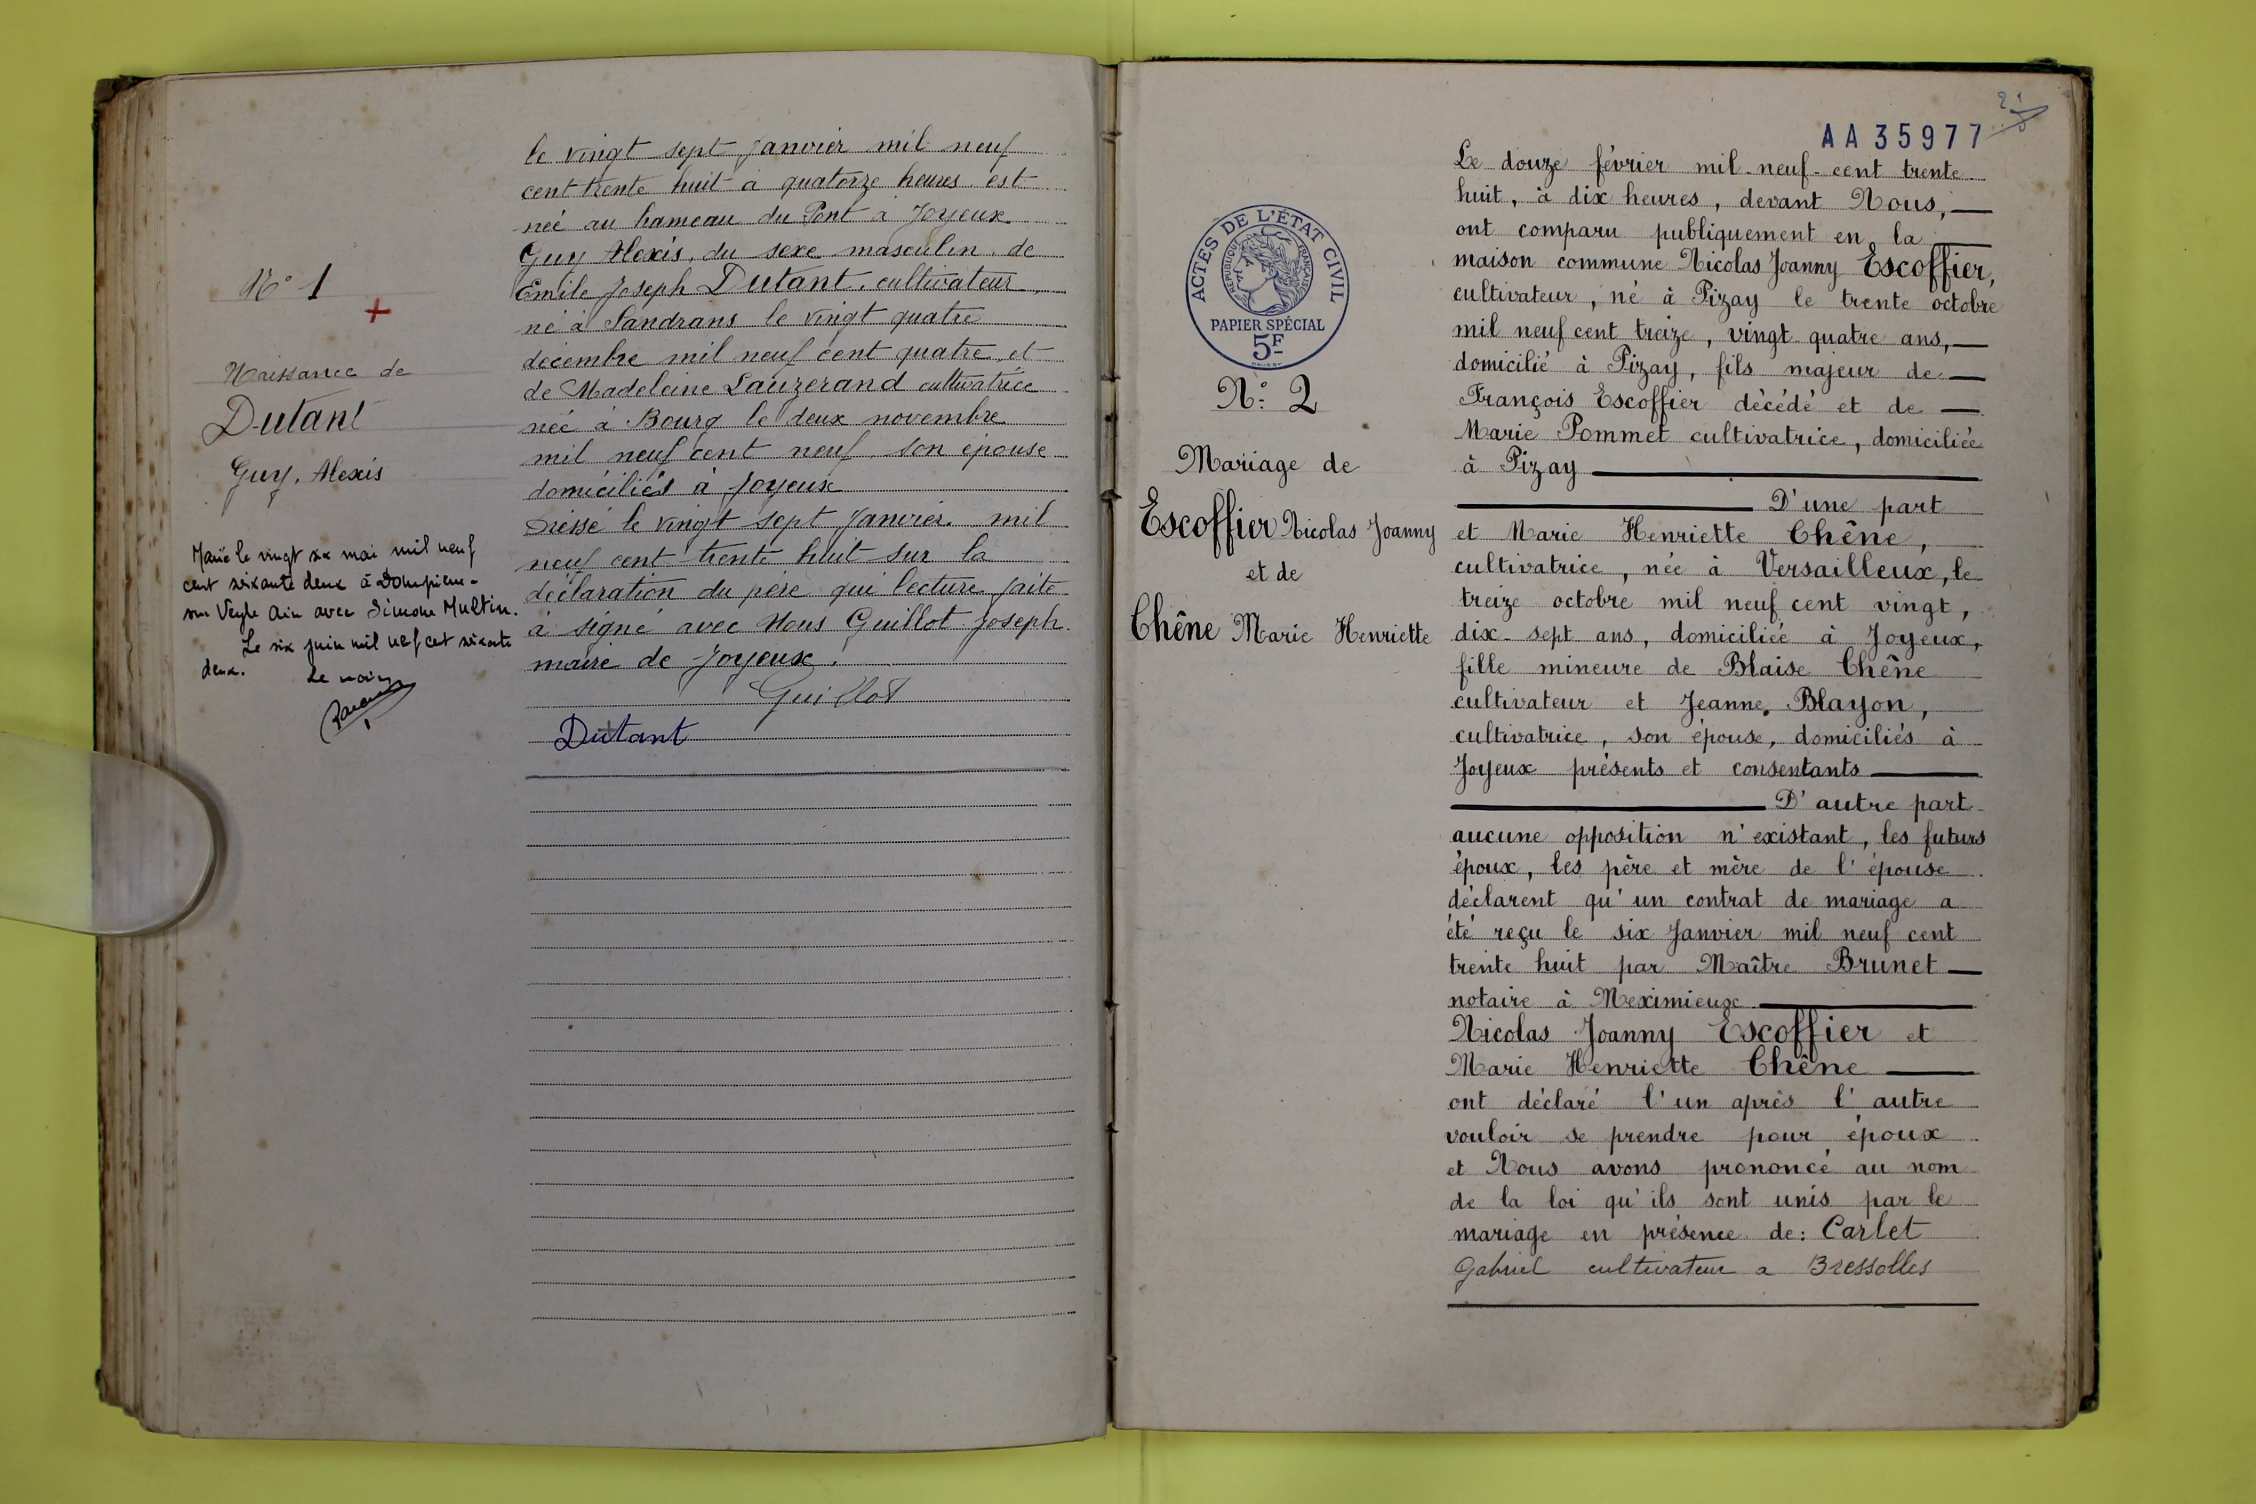 N° 1
Naissance de
Dutant
Guy, Alexis
Marié le vingt six mai mil neuf
cent soixante deux à Dompierre-
sur Veyle Ain avec Simone Multin.
Le six juin mil neuf cent soixante
deux. Le maire
le vingt sept janvier mil neuf
cent trente huit à quatorze heures est
né au hameau du Pont à Joyeux
Guy Alexis, du sexe masculin, de
Emile Joseph Dutant, cultivateur,
né à Sandrans le vingt quatre
décembre mil neuf cent quatre, et
de Madeleine Lauzerand cultivatrice
née à Bourg le deux novembre
mil neuf cent neuf, son épouse
domiciliés à Joyeux
Dressé le vingt sept janvier mil
neuf cent trente huit sur la
déclaration du père qui lecture faite
à signé avec Nous Guillot Joseph
maire de Joyeux.
Guillot
Dutant
AA35977
ACTES DE L'ÉTAT CIVIL
RÉPUBLIQUE FRANÇAISE
PAPIER SPÉCIAL
5F
N° 2
Mariage de
Escoffier Nicolas Joanny
et de
Chêne Marie Henriette
Le douze février mil-neuf-cent trente
huit, à dix heures, devant Nous,
ont comparu publiquement en la
maison commune Nicolas Joanny Escoffier,
cultivateur, né à Pizay le trente octobre
mil neuf cent treize, vingt quatre ans,
domicilié à Pizay, fils majeur de
François Escoffier décédé et de
Marie Pommet cultivatrice, domiciliée
à Pizay
D'une part
et Marie Henriette Chêne,
cultivatrice, née à Versailleux, le
treize octobre mil neuf cent vingt,
dix-sept ans, domiciliée à Joyeux,
fille mineure de Blaise Chêne
cultivateur et Jeanne Blayon,
cultivatrice, son épouse, domiciliés à
Joyeux présents et consentants
D'autre part
aucune opposition n'existant, les futurs
époux, les père et mère de l'épouse
déclarent qu'un contrat de mariage a
été reçu le six Janvier mil neuf cent
trente huit par Maître Brunet
notaire à Meximieux
Nicolas Joanny Escoffier et
Marie Henriette Chêne
ont déclaré l'un après l'autre
vouloir se prendre pour époux
et Nous avons prononcé au nom
de la loi qu'ils sont unis par le
mariage en présence de: Carlet
Gabriel cultivateur a Bressolles